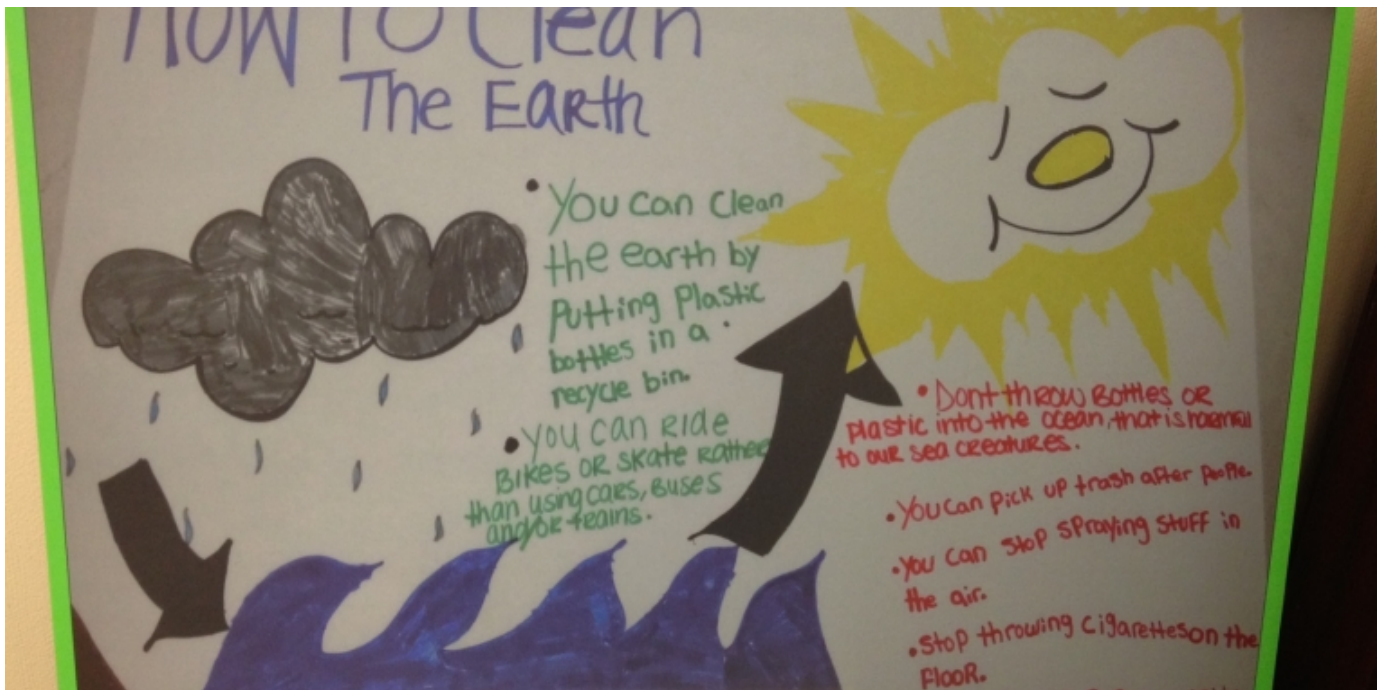 How To Clean
The Earth
• You can clean
the earth by
Putting Plastic
bottles in a
recycle bin.
• You can Ride
Bikes or skate Rather
than using cars, Buses
and/or trains.
• Dont throw Bottles or
plastic into the ocean, that is harmful
to our sea creatures.
• You can pick up trash after people.
• You can stop spraying stuff in
the air.
• Stop throwing cigarettes on the
Floor.